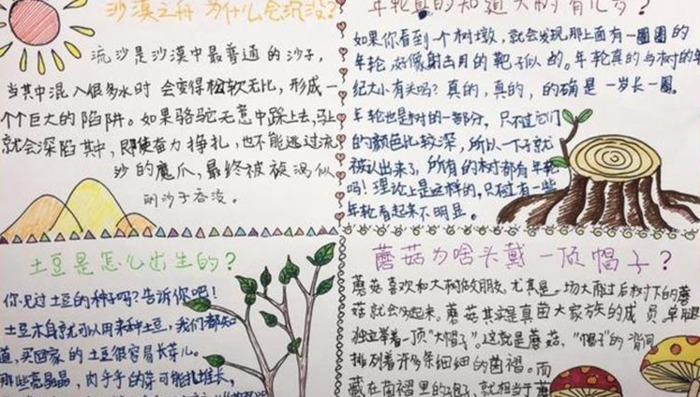 沙漠之舟 为什么会沉没?
流沙是沙漠中最普通的沙子,
当其中混入很多水时 会变得松软无比,形成一
个巨大的陷阱。如果骆驼无意中踩上去,马上
就会深陷其中,即使奋力挣扎,也不能逃过流
沙的魔爪,最终被漩涡似
的沙子吞没。
年轮真的知道大树有几岁?
如果你看到一个树墩,就会发现那上面有一圈圈的
年轮,好像射击用的靶子似的。年轮真的与树的年
纪大小有关吗?真的,真的,的确是一岁长一圈。
年轮也是树的一部分,只不过它们
的颜色比较深,所以一下子就
被认出来了,所有的树都有年轮
吗!理论上是这样的,只不过有一些
年轮看起来不明显。
土豆是怎么出生的?
你见过土豆的种子吗?告诉你吧!
土豆本身就可以用来种土豆,我们都知
道,买回家的土豆很容易长芽儿。
那些亮晶晶,肉乎乎的芽可能扎堆长,
蘑菇为啥头戴一顶帽子?
蘑菇喜欢和大树做朋友,尤其是一场大雨过后树下的蘑
菇就会多起来。蘑菇其实是真菌大家族的成员,单腿
独立举着一顶"大帽子"。这就是蘑菇,"帽子"的背间
排列着许多条细细的菌褶。而
藏在菌褶里的孢子,就相当于蘑